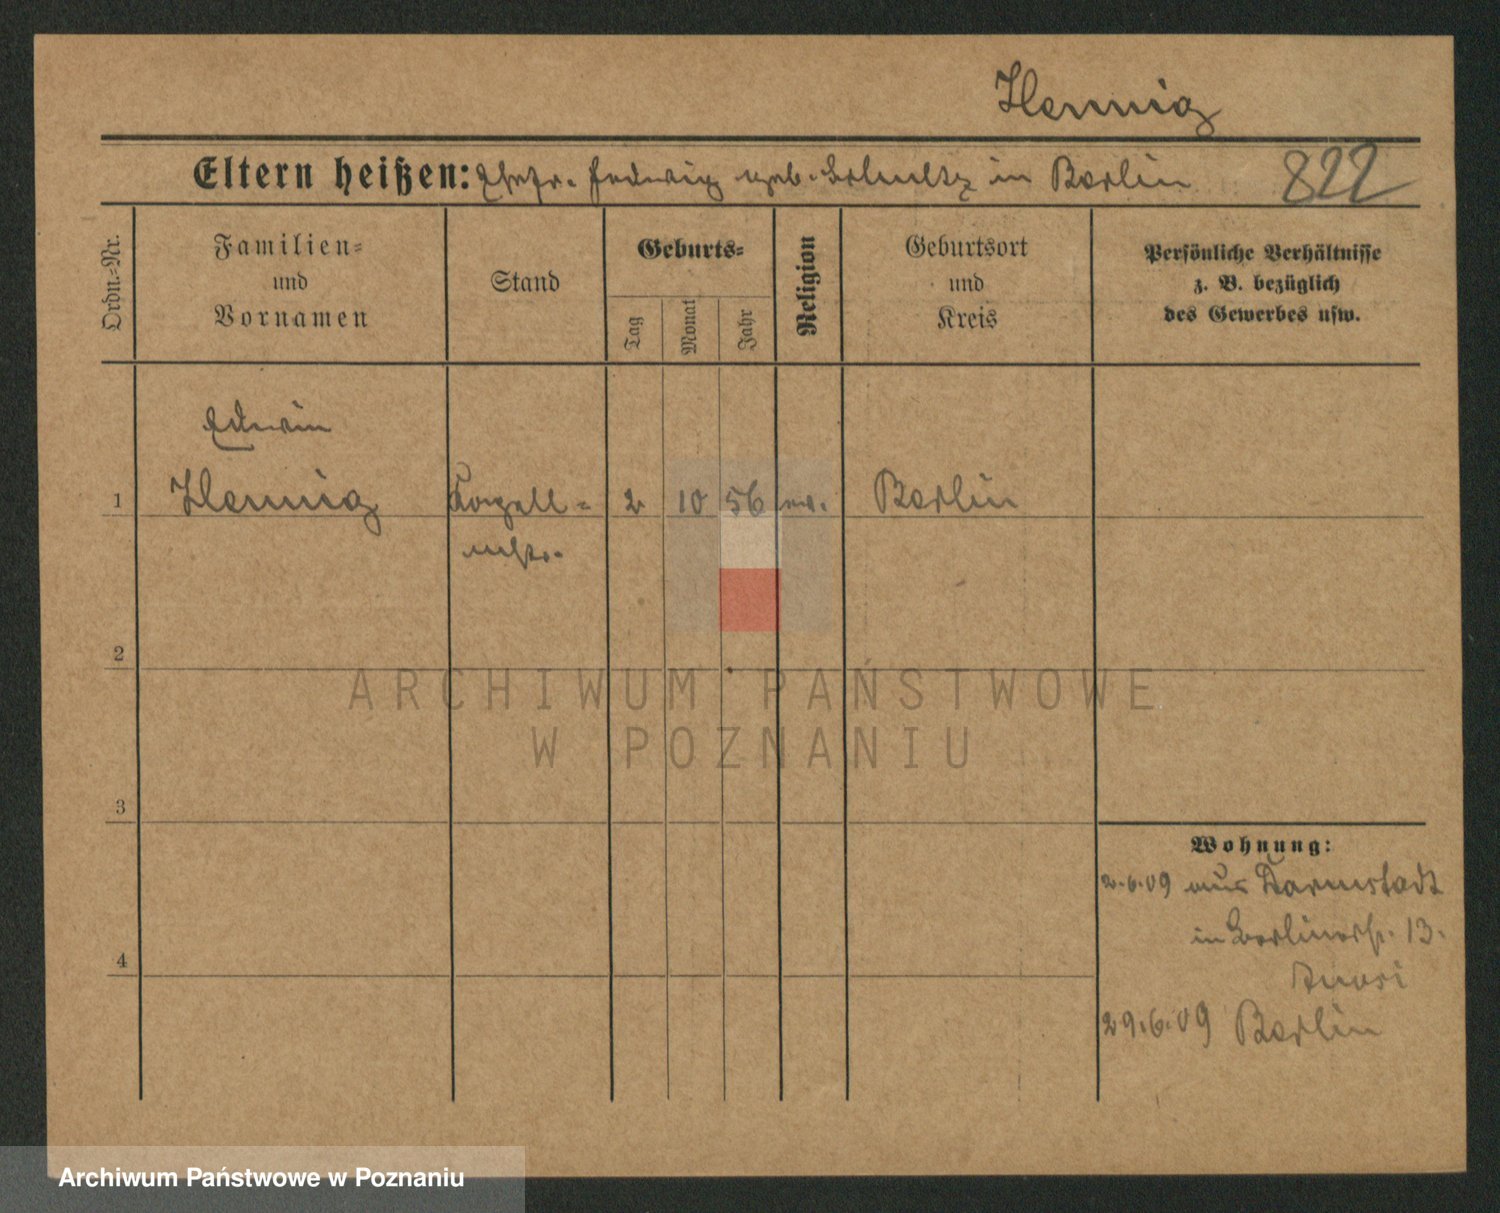 Hennig
Eltern heißen: Ehefr. Hedwig geb. Schultz in Berlin 822
Ordn.-Nr.
Familien-
und
Vornamen
Stand
Geburts-
Tag
Monat
Jahr
Religion
Geburtsort
und
Kreis
Persönliche Verhältnisse
z. B. bezüglich
des Gewerbes usw.
Edwin
1 Hennig Kapell= 2 10 56 ev. Berlin
mstr.
2
3
4
Wohnung:
2.6.09 aus Darmstadt
in Berlinerstr. 13.
29.6.09 Berlin
ARCHIWUM PAŃSTWOWE
W POZNANIU
Archiwum Państwowe w Poznaniu